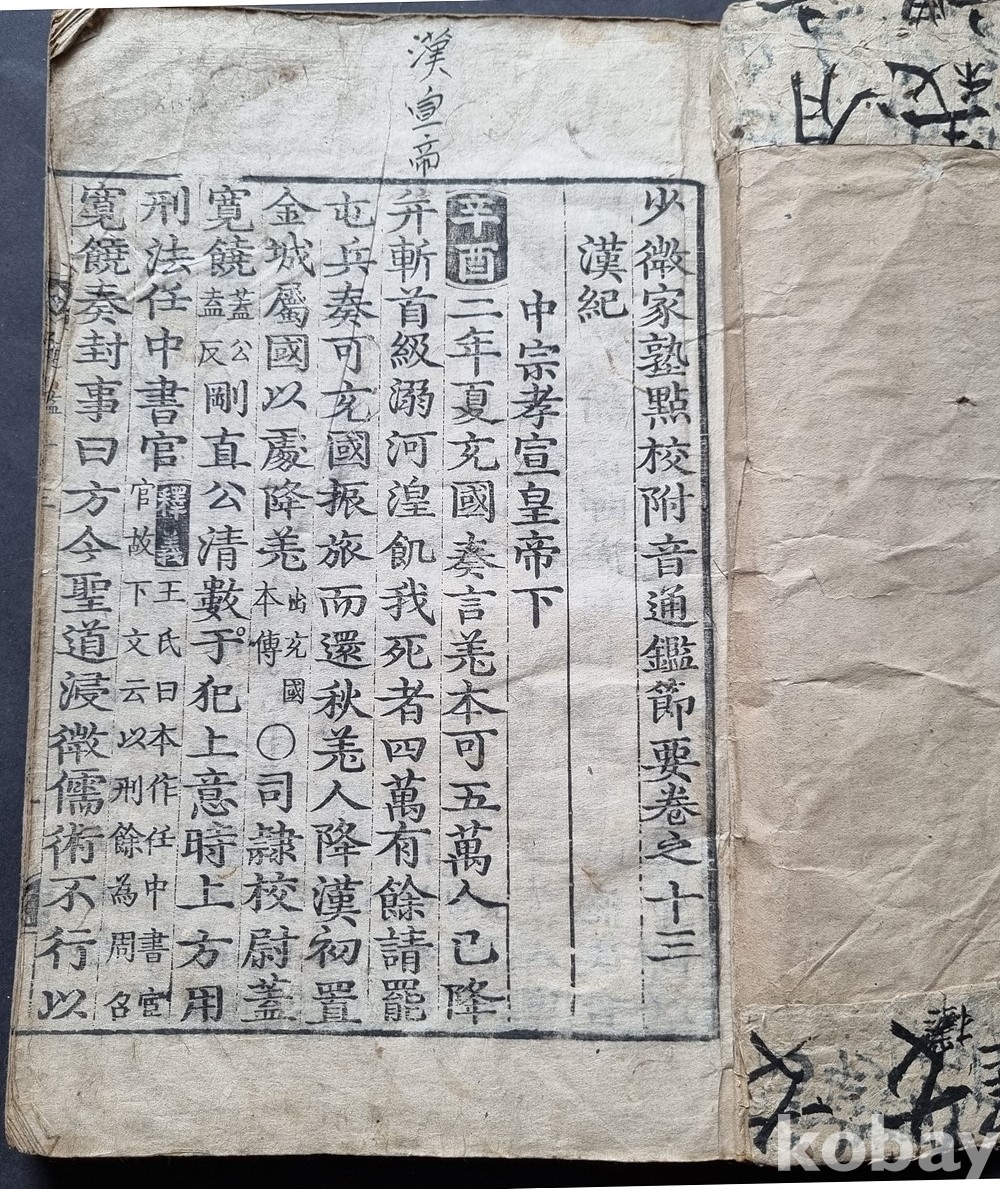 漢宣帝
少微家塾點校附音通鑑節要卷之十三
漢紀
中宗孝宣皇帝下
辛酉二年夏充國奏言羌本可五萬人已降
并斬首級溺河湟飢我死者四萬有餘請罷
屯兵奏可充國振旅而還秋羌人降漢初置
金城屬國以處降羌出充國本傳○司隷校尉蓋
寛饒蓋公盍反剛直公清數干犯上意時上方用
刑法任中書官釋義王氏曰本作任中書宦官故下文云以刑餘為周召
寛饒奏封事曰方今聖道浸微儒術不行以
kobay